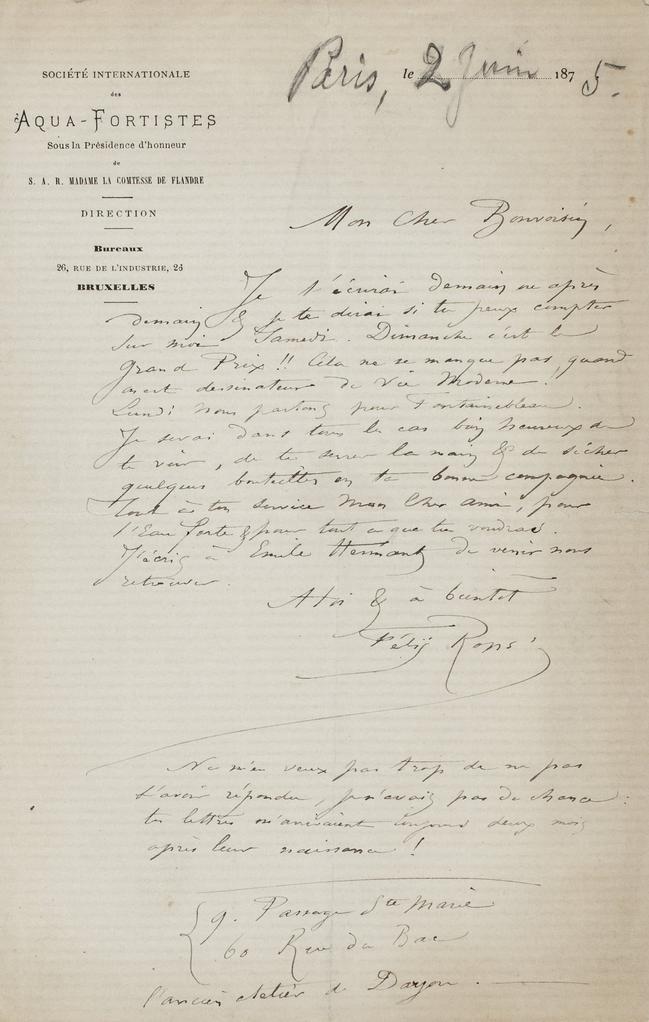 SOCIÉTÉ INTERNATIONALE
des
AQUA-FORTISTES
Sous la Présidence d'honneur
de
S. A. R. MADAME LA COMTESSE DE FLANDRE
DIRECTION
Bureaux
26, RUE DE L'INDUSTRIE, 26
BRUXELLES
Paris, le 2 Juin 1875.
Mon Cher Bonvoisin,
Je t'écrirai demain ou après
demain & je te dirai si tu peux compter
sur moi Samedi. Dimanche c'est le
Grand Prix!! Cela ne se manque pas quand
on est dessinateur de Vie Moderne!
Lundi nous partons pour Fontainebleau.
Je serai dans tous les cas bien heureux de
te voir, de te serrer la main & de sécher
quelques bouteilles en ta bonne compagnie.
Tout à ton service Mon Cher ami, pour
l'Eau forte & pour tout ce que tu voudras.
J'écris à Emile Hermant de venir nous
retrouver.
A toi & à bientôt
Félix Rops
Ne m'en veux pas trop de ne pas
t'avoir répondu, je n'avais pas de chance:
tes lettres m'arrivaient toujours deux mois
après leur naissance!
9. Passage Ste Marie
60 Rue du Bac
l'ancien atelier de